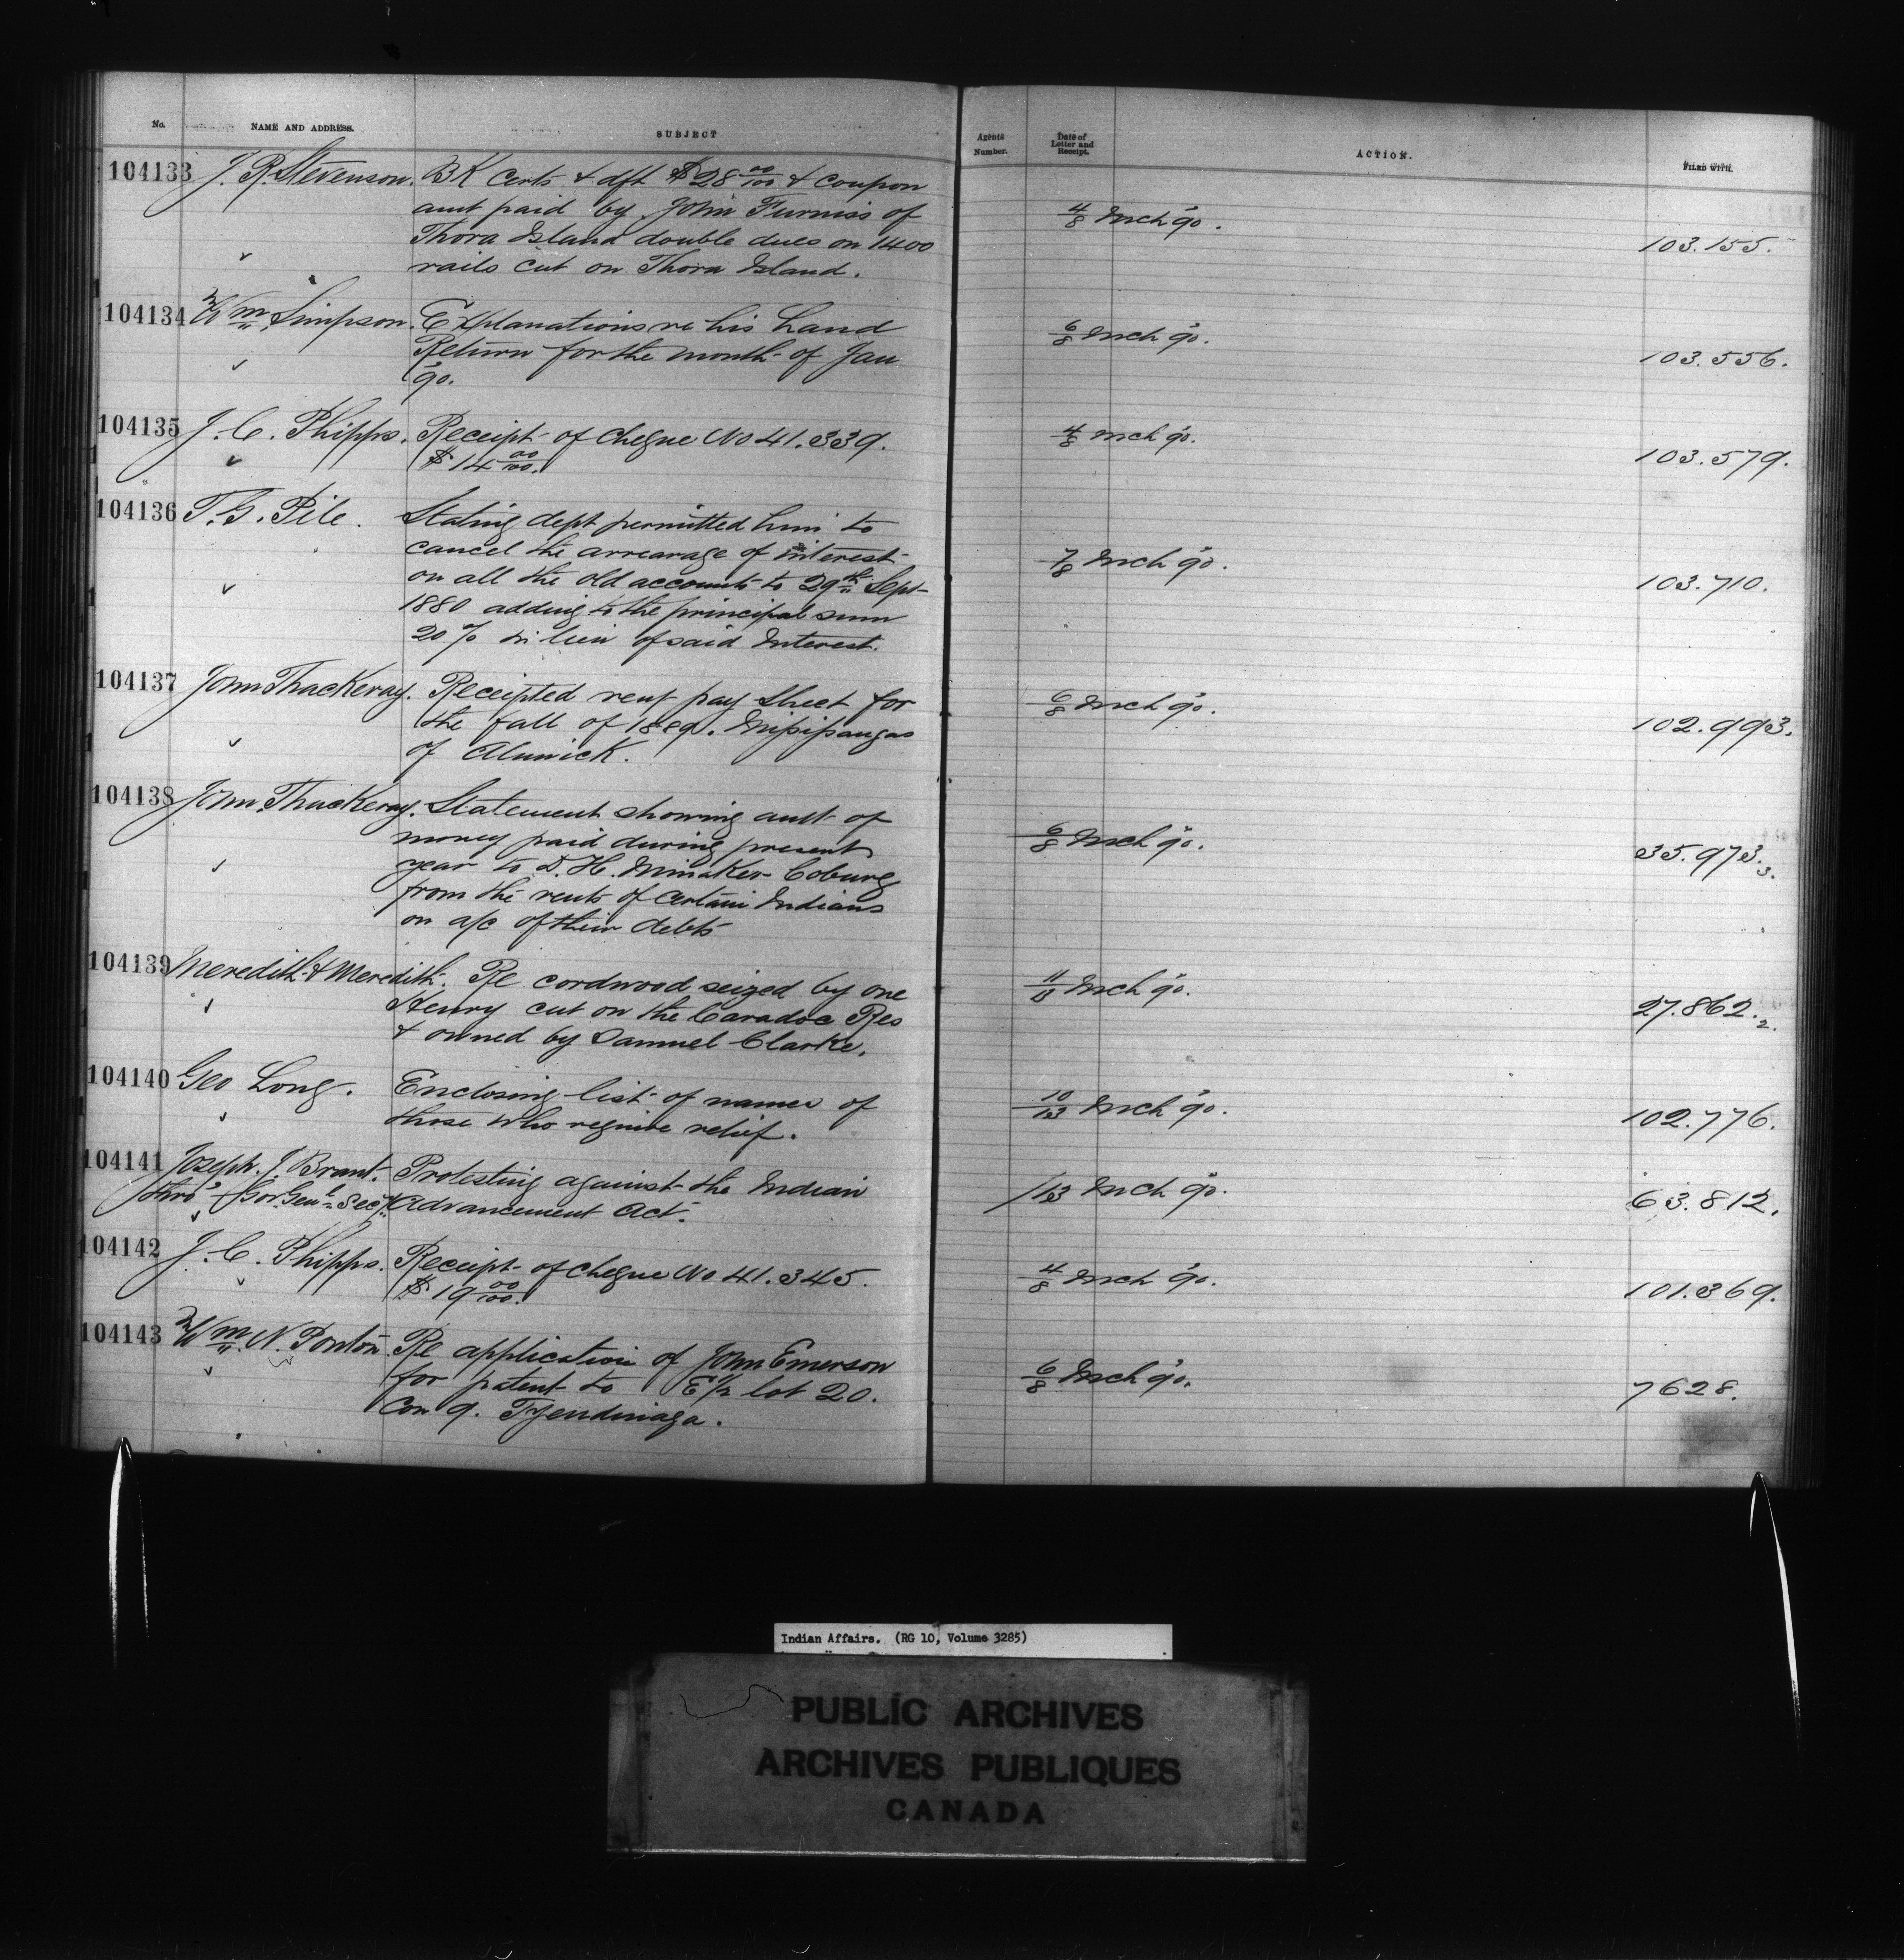 No. NAME AND ADDRESS. SUBJECT Agents Number. Date of Letter and Receipt. ACTION. FILED WITH.
104133 J. R. Stevenson. BK Certs & dft $28 00/100 & coupon
amt paid by John Furniss of 4/8 Mch '90.
Thora Island double dues on 1400 103.155.
rails cut on Thora Island.
104134 Wm Simpson. Explanations re his Land 6/8 Mch '90.
Return for the month of Jan 103.556.
'90.
104135 J. C. Phipps. Receipt of Cheque No 41.339. 4/8 Mch '90.
$14 00/100. 103.579.
104136 T. G. Pile. Stating dept permitted him to
cancel the arrearage of interest 7/8 Mch '90.
on all the old accounts to 29th Sept 103.710.
1880 adding to the principal sum
20 % in lieu of said Interest.
104137 John Thackeray. Receipted rent pay sheet for 6/8 Mch '90.
the fall of 1889. Missisaugas 102.993.
of Alnwick.
104138 John Thackeray. Statement showing amt of
money paid during present 6/8 Mch '90.
year to D. H. Minaker Coburg 35.973.3.
from the rents of certain Indians
on a/c of their debts
104139 Meredith & Meredith. Re cordwood seized by one 11/13 Mch '90.
Henry cut on the Caradoc Res 27.862.2.
& owned by Samuel Clarke.
104140 Geo Long. Enclosing list of names of 10/13 Mch '90.
those who require relief. 102.776.
104141 Joseph. J. Brant. Protesting against the Indian /13 Mch '90.
thro' Gov Genl Secy Advancement Act. 63.812.
104142 J. C. Phipps. Receipt of Cheque No 41.345. 4/8 Mch '90.
$19 00/100. 101.369.
104143 Wm. N. Ponton Re application of John Emerson
for patent to E 1/2 lot 20. 6/8 Mch '90.
Con 9. Tyendinaga. 7628.
Indian Affairs. (RG 10, Volume 3285)
PUBLIC ARCHIVES
ARCHIVES PUBLIQUES
CANADA